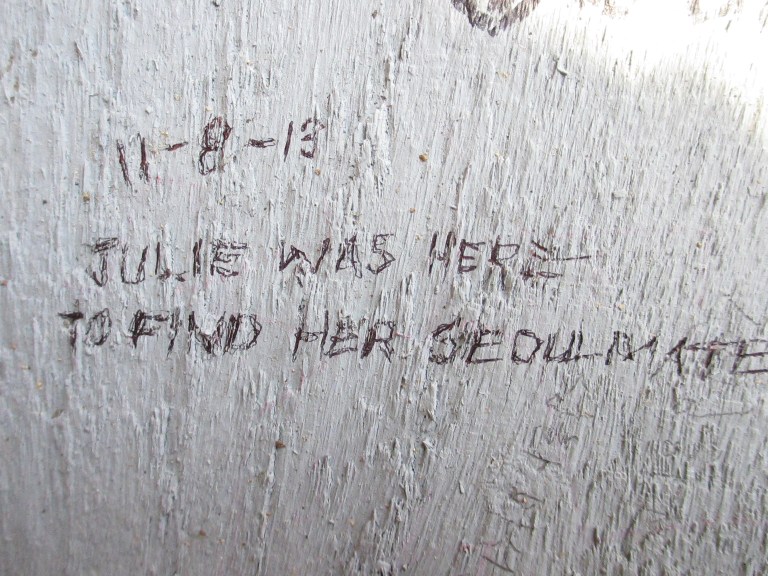 11-8-13
JULIE WAS HERE
TO FIND HER SEOULMATE